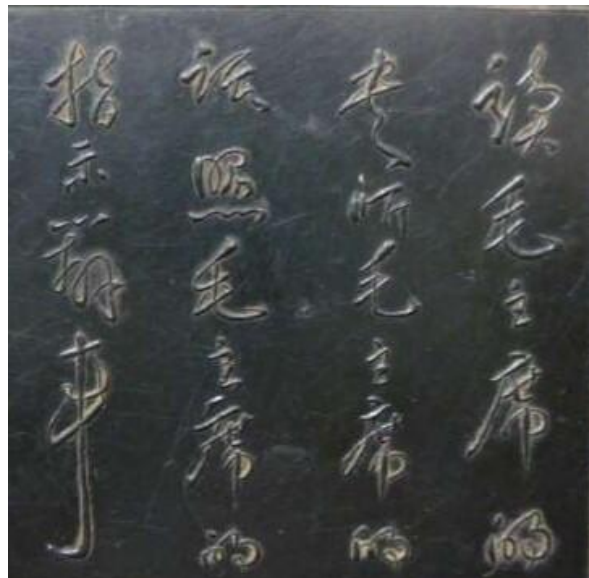 读毛主席的
书听毛主席的
话照毛主席的
指示办事